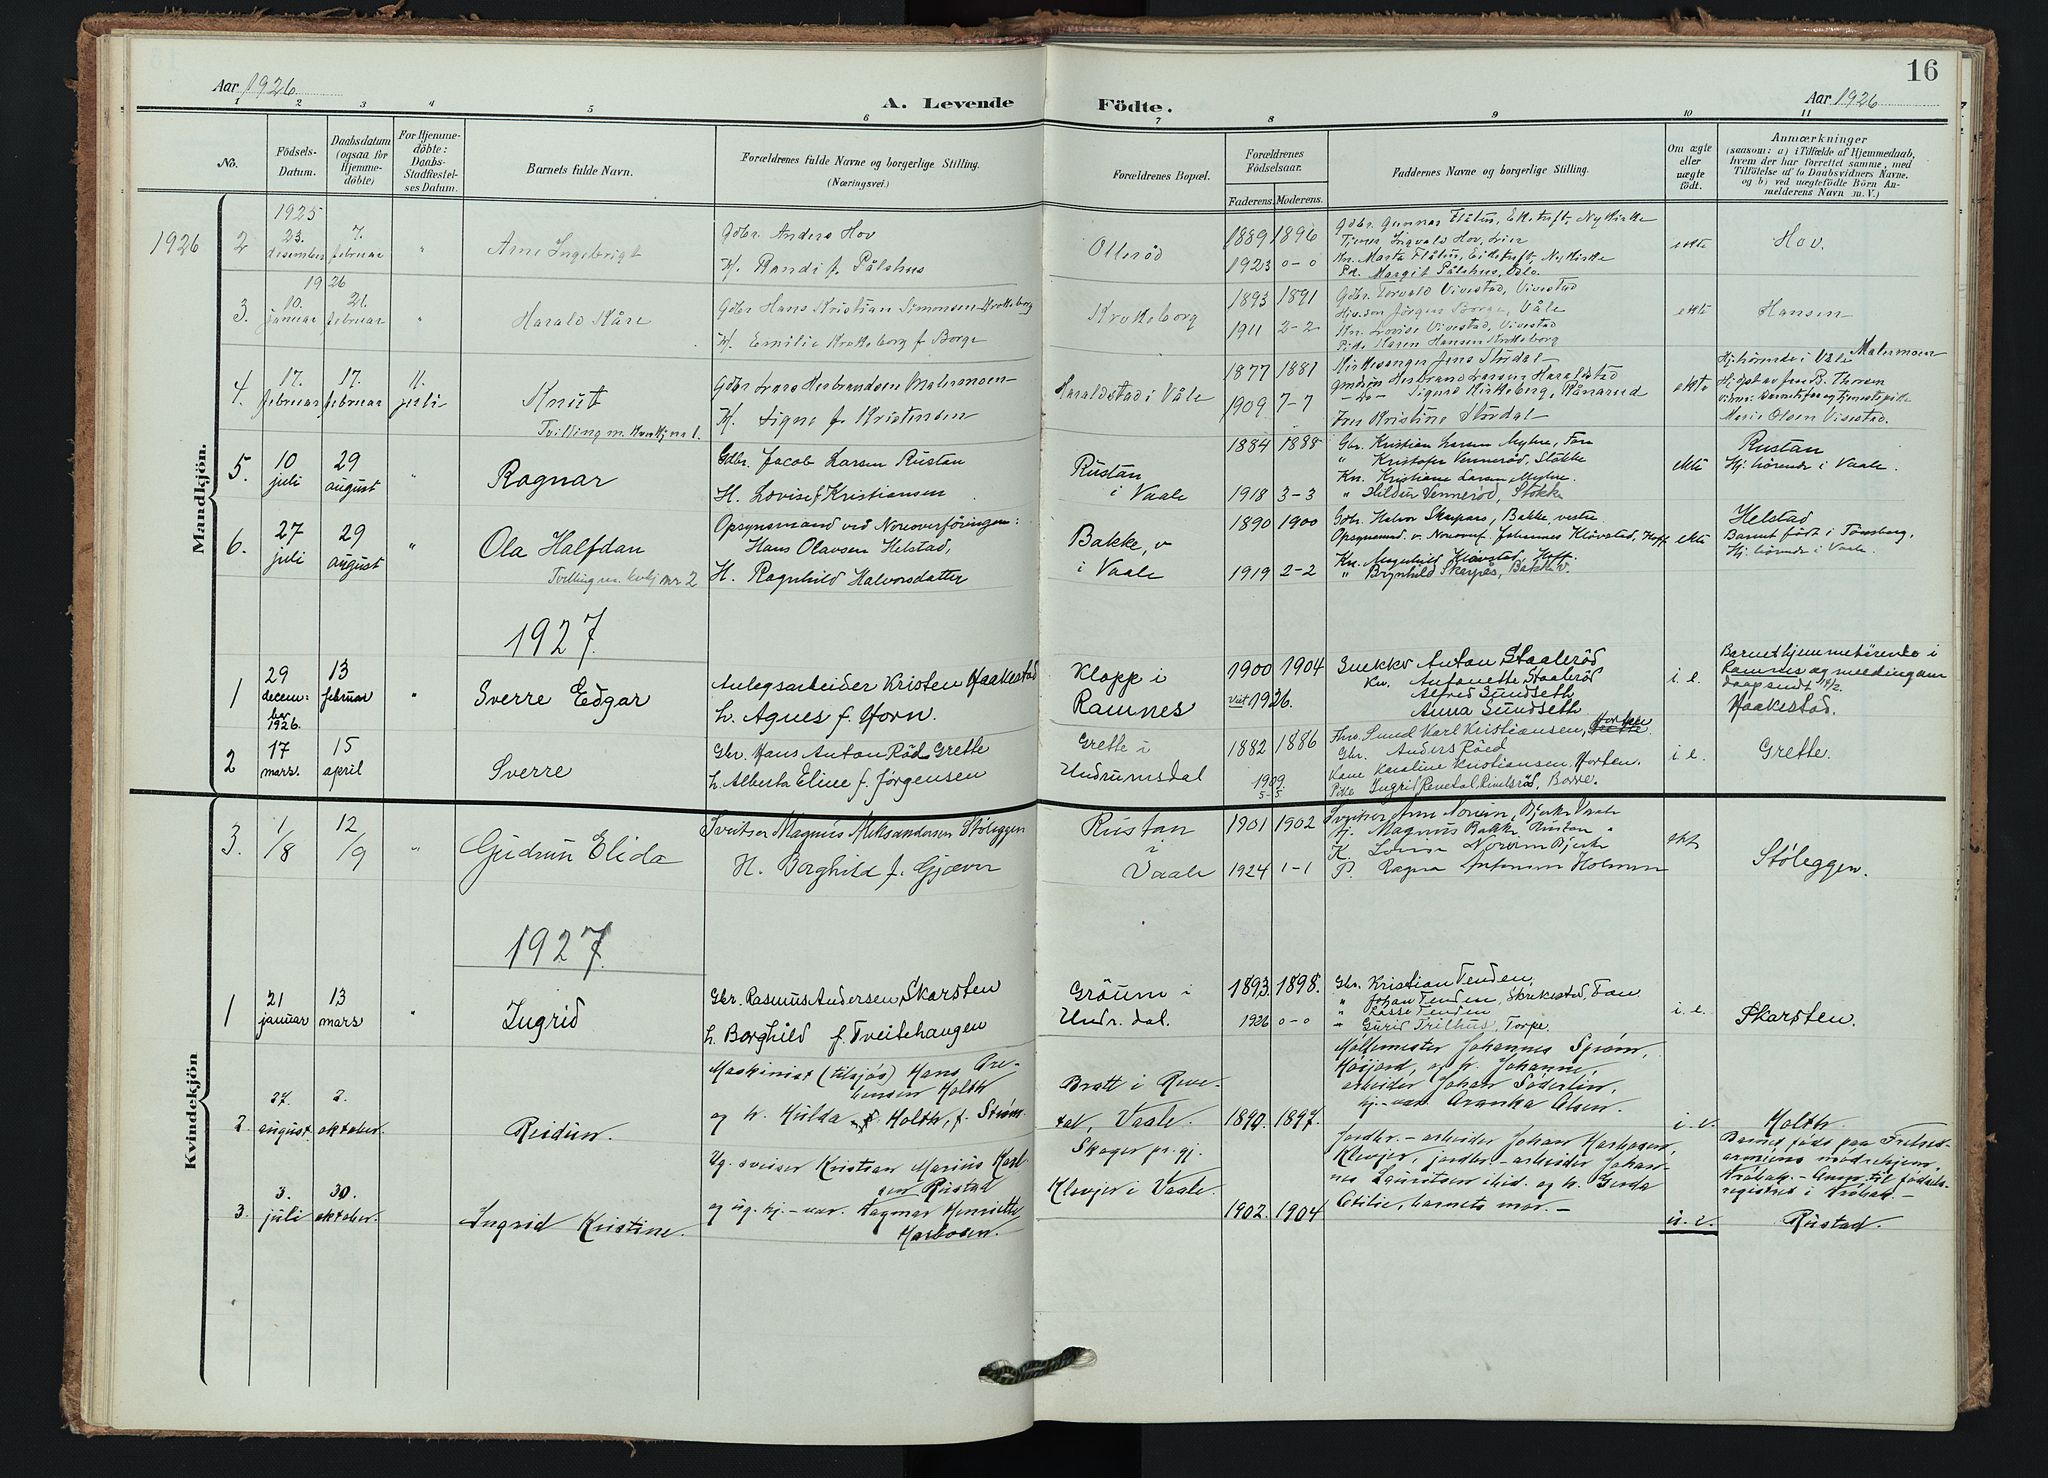 16
Aar 1926
A. Levende
Födte.
Aar 1926
1 2 3 4 5 6 7 8 9 10 11
No.
Födsels-Datum.
Daabsdatum (ogsaa for Hjemmedöbte)
For Hjemmedöbte: Daabs-Stadfæstelses Datum.
Barnets fulde Navn.
Forældrenes fulde Navne og borgerlige Stilling.
(Næringsvei.)
Forældrenes Bopæl.
Forældrenes Födselsaar.
Faderens. Moderens.
Faddernes Navne og borgerlige Stilling.
Om ægte eller uægte födt.
Anmærkninger
(saasom: a) i Tilfælde af Hjemmedaab, hvem der har forrettet samme, med Tilföielse af to Daabsvidners Navne. og b) ved uægtefödte Börn Anmelderens Navn m. V.)
Mandkjön.
1926
2
1925
23. desember
7. februar
"
Arne Ingebrigt
Gdbr. Anders Hov
H. Randi f. Pålshus
Ollerød
1889 1896
1923 0-0
Gdbr Gunnar Flåtus, Eketuft, Nykirke
Tjener Ingvald Hov, Lier
Kn. Marta Flåtus, Eiketuft, Nykirke
Pk. Margit Pålshus, Oslo.
ekte
Hov.
1926
3.
10. januar
21. februar
"
Harald Kåre
Gdbr Hans Kristian Simonsen Krokeborg
H. Emilie Krokeborg f Borge
Krokeborg
1893 1891
1911 2-2
Gdbr. Torvald Vivestad, Vivestad
Hjv. søn Jörgen Borge, Våle
Kn. Lovise Vivestad, Vivestad
Pike Maren Hansen Krokeborg
ekte
Hansen
4.
17. februar
17. februar
11. juli
Knut
Tvilling m. Kvinkjn 1.
Gdbr Lars Herbrandsen Malermoen
H. Signe f. Kristensen
Haraldstad i Våle
1877 1881
1909 7-7
Kirkesanger Jens Stordal
Gmdsøn Herbrand Larsen Haraldstad
-"- Sigurd Kirkeberg, Rånerud
Frk Kristine Stordal
ekte
Malermoen
Hj.hörende i Våle
Hj. døpt av fru B. Thoresen
vidner: Barnets far og tjenestepike
Marie Olsen Vivestad.
5.
10 juli
29 august
"
Ragnar
Gdbr. Jacob Larsen Rustan
H. Lovise f Kristiansen
Rustan
i Vaale
1884 1888
1918 3-3
Gbr. Kristian Larsen Myhre, Fon
" Kristofer Vennerød, Stokke
Kn. Kristiane Larsen Myhre.
" Hildur Vennerød, Stokke
ekte
Rustan
Hj. hørende i Vaale.
6.
27 juli
29 august
"
Ola Halfdan
Tvilling m. kvkj nr 2
Opsynsmand ved Noreoverføringen:
Hans Olavsen Helstad,
H. Ragnhild Halvorsdatter
Bakke, v
i Vaale
1890 1900
1919 2-2
Gbr. Halvor Skarpaas, Bakke, vestre
Opsynsmand v. Noreovf. Johannes Kløvstad, Hoff
Kn. Magnhild Kløvstad, Hoff.
" Brynhild Skarpås, Bakke v.
ekte
Helstad
Barnet født i Tønsberg,
Hj. hørende i Vaale.
1927
1
29 december 1926.
13 februar
"
Sverre Edgar
Anlegsarbeider Kristen Haakestad
h. Agnes f. Horn.
Klopp i
Ramnes
1900 1904
viet 1926.
Snekker Anton Staalerød
Kn. Antonette Staalerød
Alfred Sundseth
Anna Sundseth
i e.
Barnet hjemmehørende i
Ramnes og melding om
daap sendt 14/2.
Haakestad.
2
17 mars.
15 april
Sverre
Gbr. Hans Anton Röd Grette
h. Alberta Eline f. Jørgensen
Grette i
Undrumsdal
1882 1886
1909.
5-5
Karl Kristiansen, Horten
Gbr. Anders Röed
Kone Karoline Kristiansen, Horten.
Pike Ingrid Revetal, Borre.
i e.
Grette.
Kvindekjön
3.
1/8
12/9
"
Gudrun Elida
Sveitser Magnus Aleksandersen Støleggen
H. Borghild f. Gjæver
Rustan
i
Vaale
1901 1902
1924 1-1
Sveitser Arne Norum, Bjerke Vaale
Magnus Bakke Rustan "
K. Lovise Norum Bjerke
P. Ragna Antonsen Holmen
ekt
Støleggen.
1927
1
21 januar
13 mars
"
Ingrid
Gbr. Rasmus Andersen Skarsten
h. Borghild f. Tveitehaugen
Gröum i
Undr. dal.
1893. 1898.
1926 0-0
Gbr. Kristian Tenden,
" Johan Tenden, Skrekestad, Fon
" Lasse Tenden
" Gurid Trilhus, Torpe.
i. e.
Skarsten.
2.
27. august
2. oktober.
Reidun.
Maskinist (tilsjøs) Hans Arentsen Holth
og h. Hulda Holth, f. Strøm.
Bratt i Revetal, Vaale.
1890. 1897.
Møllemester Johannes Strøm,
Kösjord, og h. Johanne,
arbeider Johan Söderlin,
hj.-vær. Aranka Olsen.
i. e.
Holth.
3.
3. juli
30. oktober.
Ingrid Kristine.
Ug. sveiser Kristian Marius Karlsen Rustad
og ug. hj.-vær. Dagmar Henriette
Karlsen.
Skoger pr.gj.
Klevjer i Vaale.
1902. 1904
Jordbr.-arbeider Johan
Klevjer, jordbr.-arbeider Johannes
Lauritsen ibid. og h. Gerda
Otilie, barnets mor.-
u. e.
Barnet føds paa Frelsesarmeens
mødrehjem,
Drøbak. - Anm. til fødselsregistret
i Drøbak.-
Rustad.